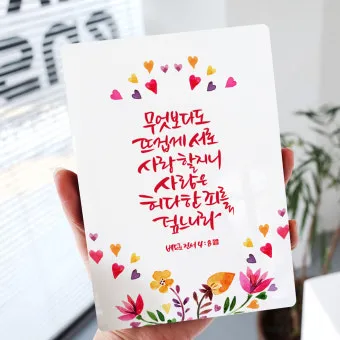 무엇보다도
뜨겁게 서로
사랑할지니
사랑은
허다한 죄를
덮느니라
베드로전서 4:8